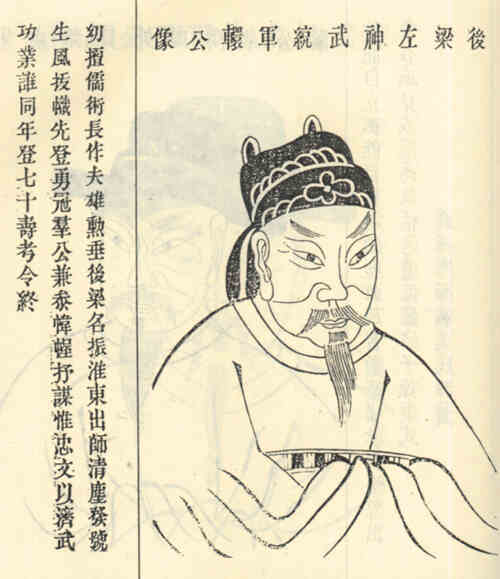 後梁左神武統軍公像
幼擅儒術長作夫雄勲垂後梁名振淮東出師清塵發號
生風拔幟先登勇冠羣公兼叅幃幄抒謀惟忠文以濟武
功業誰同年登七十壽考令終